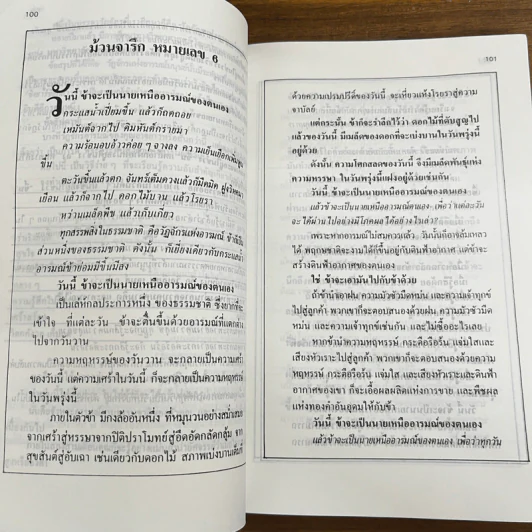 100
ม้วนจารึก หมายเลข 6
วันนี้ ข้าจะเป็นนายเหนืออารมณ์ของตนเอง
กระแสน้ำเปี่ยมขึ้น แล้วก็ถดถอย
เหมันต์จากไป คิมหันต์กรายมา
ความร้อนอบอ้าวค่อย ๆ จางลง ความเย็นเยือกเพิ่มพูน
ขึ้น
ตะวันขึ้นแล้วตก จันทร์เต็มดวงแล้วก็มืดมิด
เยือน แล้วก็จากไป ดอกไม้บาน แล้วโรยรา
หว่านเมล็ดพืช แล้วเก็บเกี่ยว
ทุกสรรพสิ่งในธรรมชาติ คือวัฏจักรแห่งอารมณ์ ข้าก็เป็น
ส่วนหนึ่งของธรรมชาติ ดังนั้น ก็เยี่ยงเดียวกับกระแส
อารมณ์ข้าย่อมมีขึ้นมีลง
วันนี้ ข้าจะเป็นนายเหนืออารมณ์ของตนเอง
เป็นเล่ห์กลประการหนึ่ง ของธรรมชาติ ซึ่งยากที่จะ
เข้าใจ ที่แต่ละวัน ข้าจะตื่นขึ้นด้วยอารมณ์ที่แตกต่าง
ไปจากวันวาน
ความหฤหรรษ์ของวันวาน จะกลายเป็นความเศร้า
ของวันนี้ แต่ความเศร้าในวันนี้ ก็จะกลายเป็นความหฤหรรษ์
ในวันพรุ่งนี้
ภายในตัวข้า มีกงล้ออันหนึ่ง ที่หมุนวนอย่างสม่ำเสมอ
จากเศร้าสู่หรรษาจากปีติปราโมทย์สู่อึดอัดกลัดกลุ้ม จาก
สุขสันต์สู่อับเฉา เช่นเดียวกับดอกไม้ สภาพเบ่งบานเต็มที่
101
ด้วยความเปรมปรีดิ์ของวันนี้ จะเหี่ยวแห้งโรยราสู่ความ
จาบัลย์
แต่กระนั้น ข้าก็จะรำลึกไว้ว่า ดอกไม้ที่ดับสูญไป
แล้วของวันนี้ มีเมล็ดของดอกที่จะเบ่งบานในวันพรุ่งนี้
อยู่ด้วย
ดังนั้น ความโศกสลดของวันนี้ จึงมีเมล็ดพันธุ์แห่ง
ความหรรษา ในวันพรุ่งนี้แฝงอยู่ด้วยเช่นกัน
วันนี้ ข้าจะเป็นนายเหนืออารมณ์ของตนเอง
แล้วข้าจะเป็นนายเหนืออารมณ์ของตนเอง เพื่อว่าแต่ละวัน
จะได้ผ่านไปอย่างมีโภคผลได้อย่างไรเล่า?
เพราะหากอารมณ์ไม่สมควรแล้ว วันนั้นก็คงล้มเหลว
ได้ พฤกษชาติจะงามได้ก็ขึ้นอยู่กับดินฟ้าอากาศ แต่ข้าจะ
สร้างดินฟ้าอากาศของตนเอง
ใช่ ข้าจะเอามันไปกับข้าด้วย
ถ้าข้านำเอาฝน ความมัวซัวมืดหม่น และความเจ้าทุกข์
ไปสู่ลูกค้า พวกเขาก็จะตอบสนองด้วยฝน ความมัวซัวมืด
หม่น และความเจ้าทุกข์เช่นกัน และไม่ซื้ออะไรเลย
หากข้านำความหฤหรรษ์ กระตือรือร้น แจ่มใส และ
เสียงหัวเราะไปสู่ลูกค้า พวกเขาก็จะตอบสนองด้วยความ
หฤหรรษ์ กระตือรือร้น แจ่มใส และเสียงหัวเราะและดินฟ้า
อากาศของเขา ก็จะเอื้อผลผลิตแห่งการขาย และพืชผล
แห่งทองคำอันอุดมให้กับข้า
วันนี้ ข้าจะเป็นนายเหนืออารมณ์ของตนเอง
แล้วข้าจะเป็นนายเหนืออารมณ์ของตนเอง เพื่อว่าทุกวัน